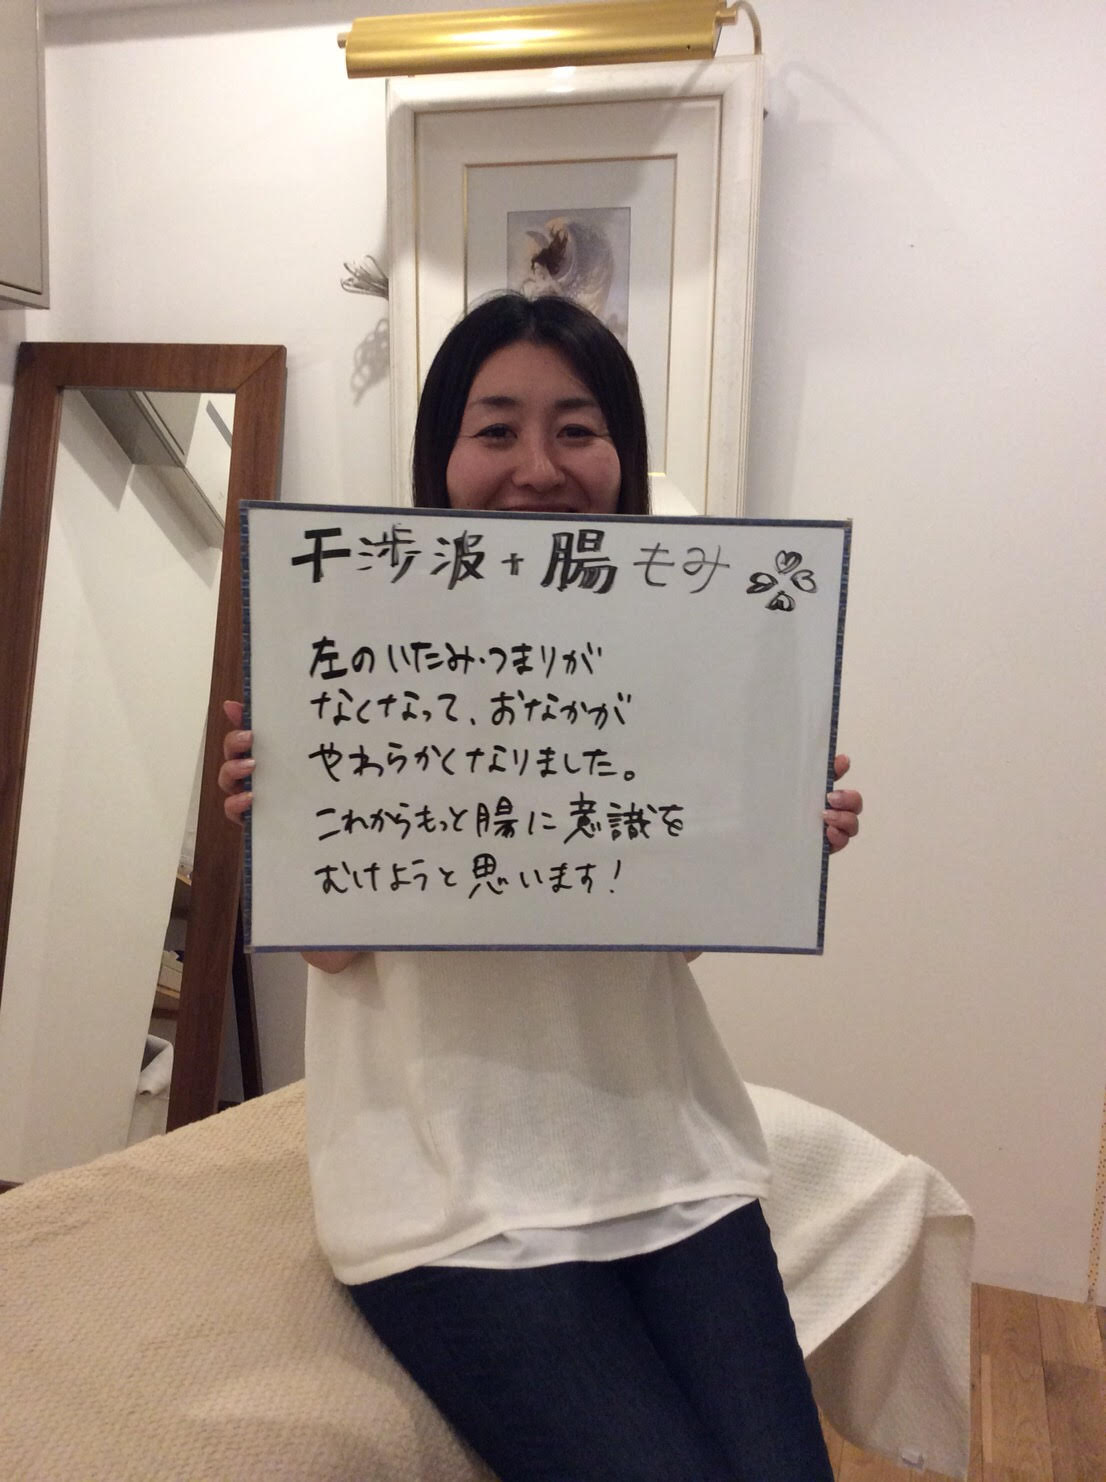 干渉波+腸もみ
左のいたみ・つまりが
なくなって、おなかが
やわらかくなりました。
これからもっと腸に意識を
むけようと思います!